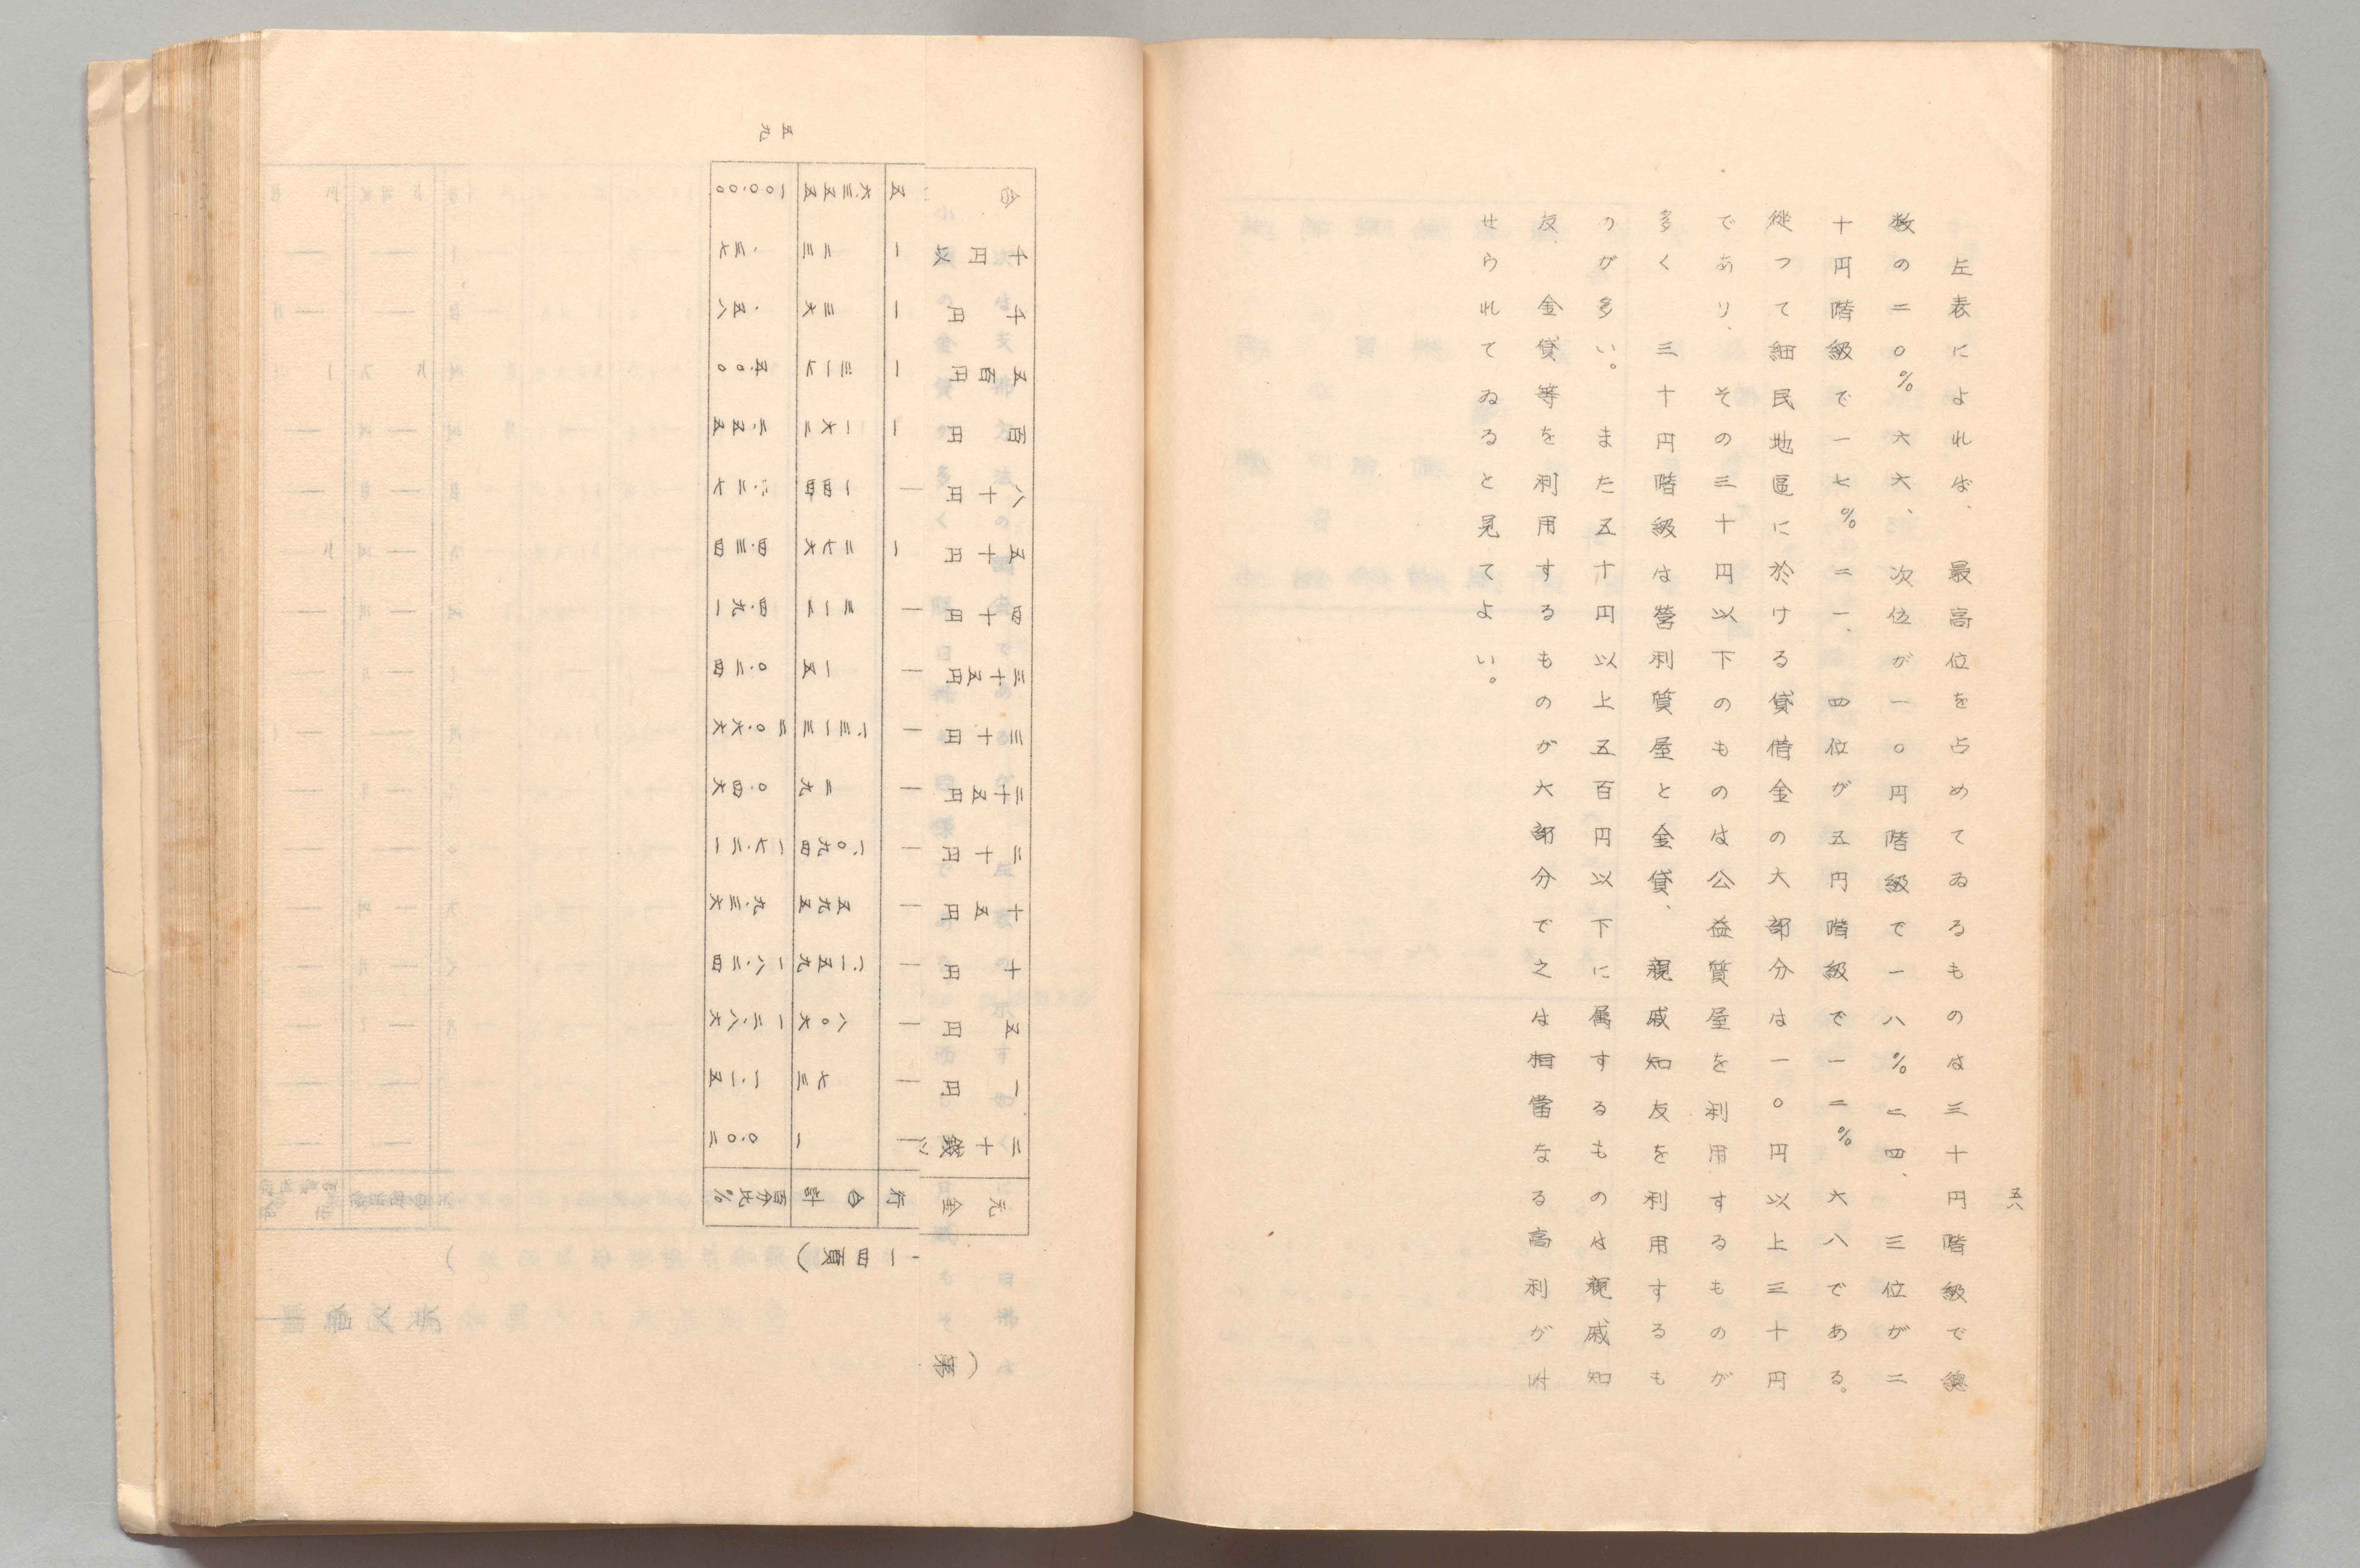 五八
左表によれば、最高位を占めてゐるものは三十円階級で總
数の二〇%六六、次位が一〇円階級で一八%二四、三位が二
十円階級で一七%二一、四位が五円階級で一二%六八である。
従つて細民地區に於ける貸借金の大部分は一〇円以上三十円
であり、その三十円以下のものは公益質屋を利用するものが
多く三十円階級は營利質屋と金貸、親戚知友を利用するも
のが多い。また五十円以上五百円以下に属するものは親戚知
友、金貸等を利用するものが大部分で之は相當なる高利が附
せられてゐると見てよい。
五九
(第
一四頁)
元金 二十銭以 一円 五円 十円 十五円 二十円 二十五円 三十円 三十五円 四十円 五十円 八十円 百円 五百円 千円 千円以 合
合計 一 七三 八〇六 一、一五九 五九五 一、〇九四 二九 一、三一三 一五 三一二 二七六 一四四 一六二 三一七 三六 二三 六、三五五
百分比% 〇.〇二 一.一五 一二.八六 一八.二四 九.三六 一七.二一 〇.四六 二〇.六六 〇.二四 四.九一 四.三四 二.二七 二.五五 五.〇〇 .五八 .三七 一〇〇.〇〇